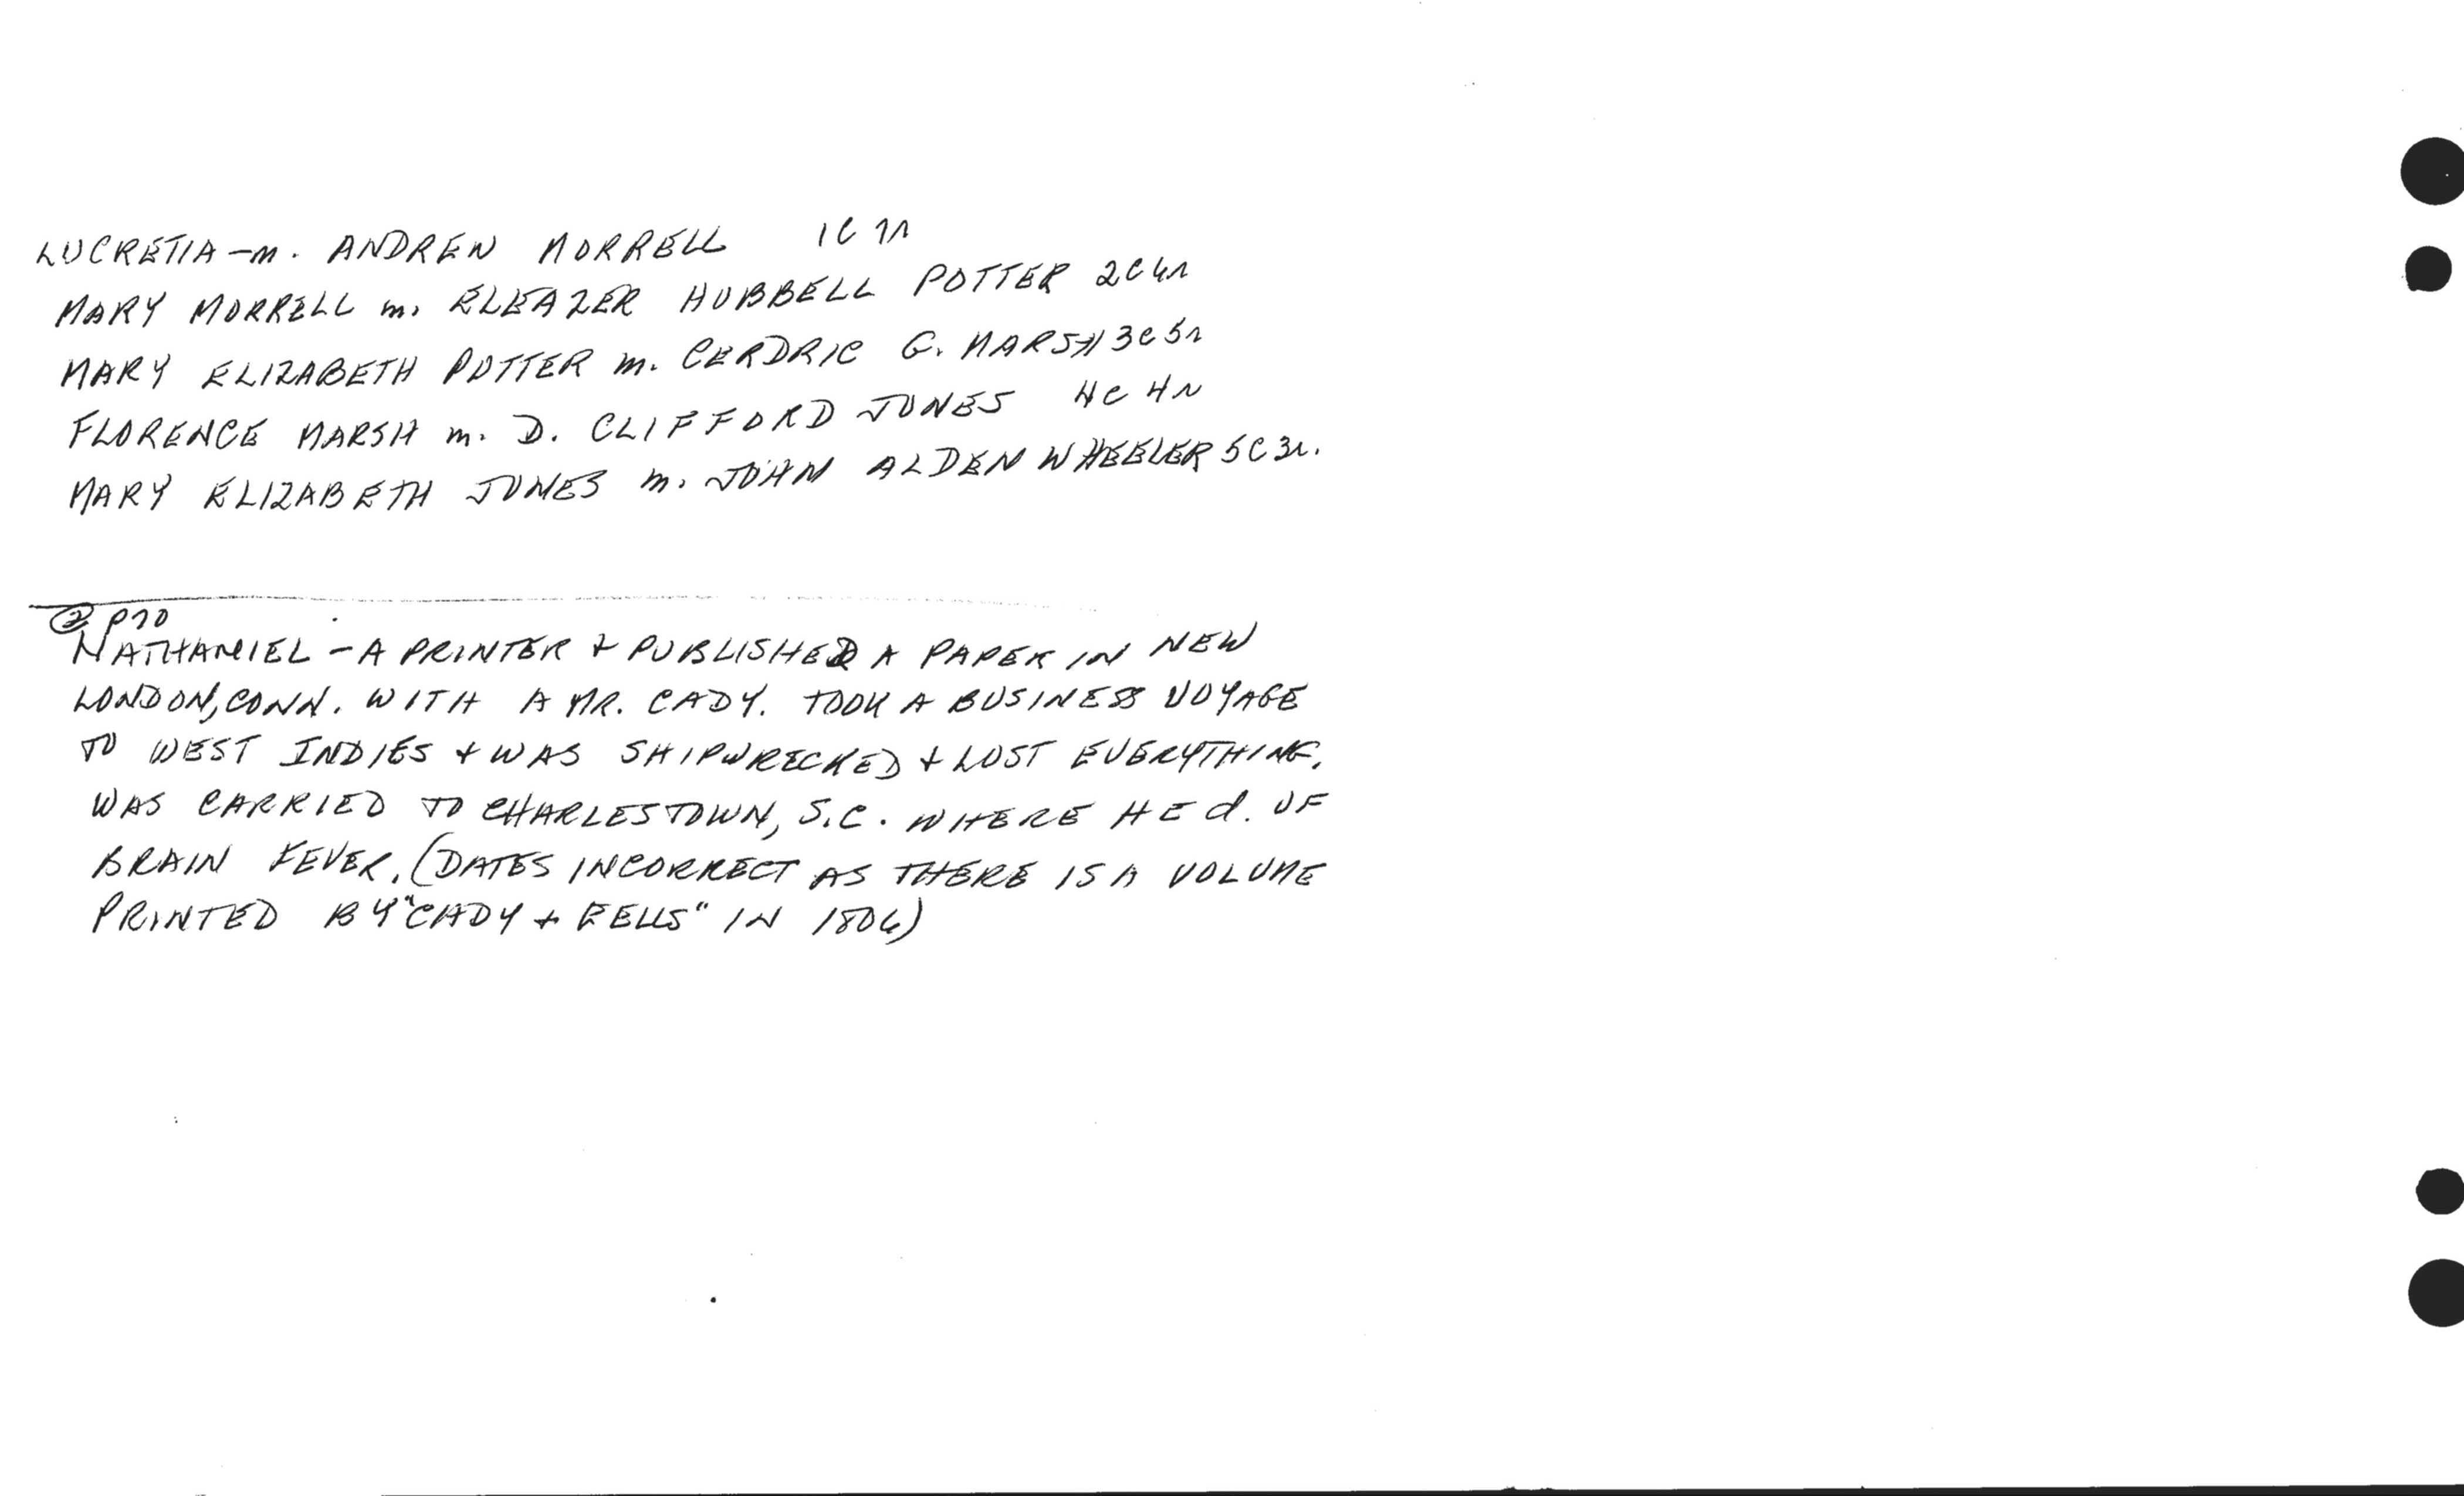 LUCRETIA - m. ANDREW MORRELL 1C 7r
MARY MORRELL m. ELEAZER HUBBELL POTTER 2C 4r
MARY ELIZABETH POTTER m. CERDRIC G. MARSH 3C 5r
FLORENCE MARSH m. D. CLIFFORD JONES 4C 4r
MARY ELIZABETH JONES m. JOHN ALDEN WHEELER 5C 3r.
② P70
NATHANIEL - A PRINTER + PUBLISHED A PAPER IN NEW
LONDON, CONN. WITH A MR. CADY. TOOK A BUSINESS VOYAGE
TO WEST INDIES + WAS SHIPWRECKED + LOST EVERYTHING.
WAS CARRIED TO CHARLESTOWN, S.C. WHERE HE d. OF
BRAIN FEVER. (DATES INCORRECT AS THERE IS A VOLUME
PRINTED BY "CADY + EELLS" IN 1806)